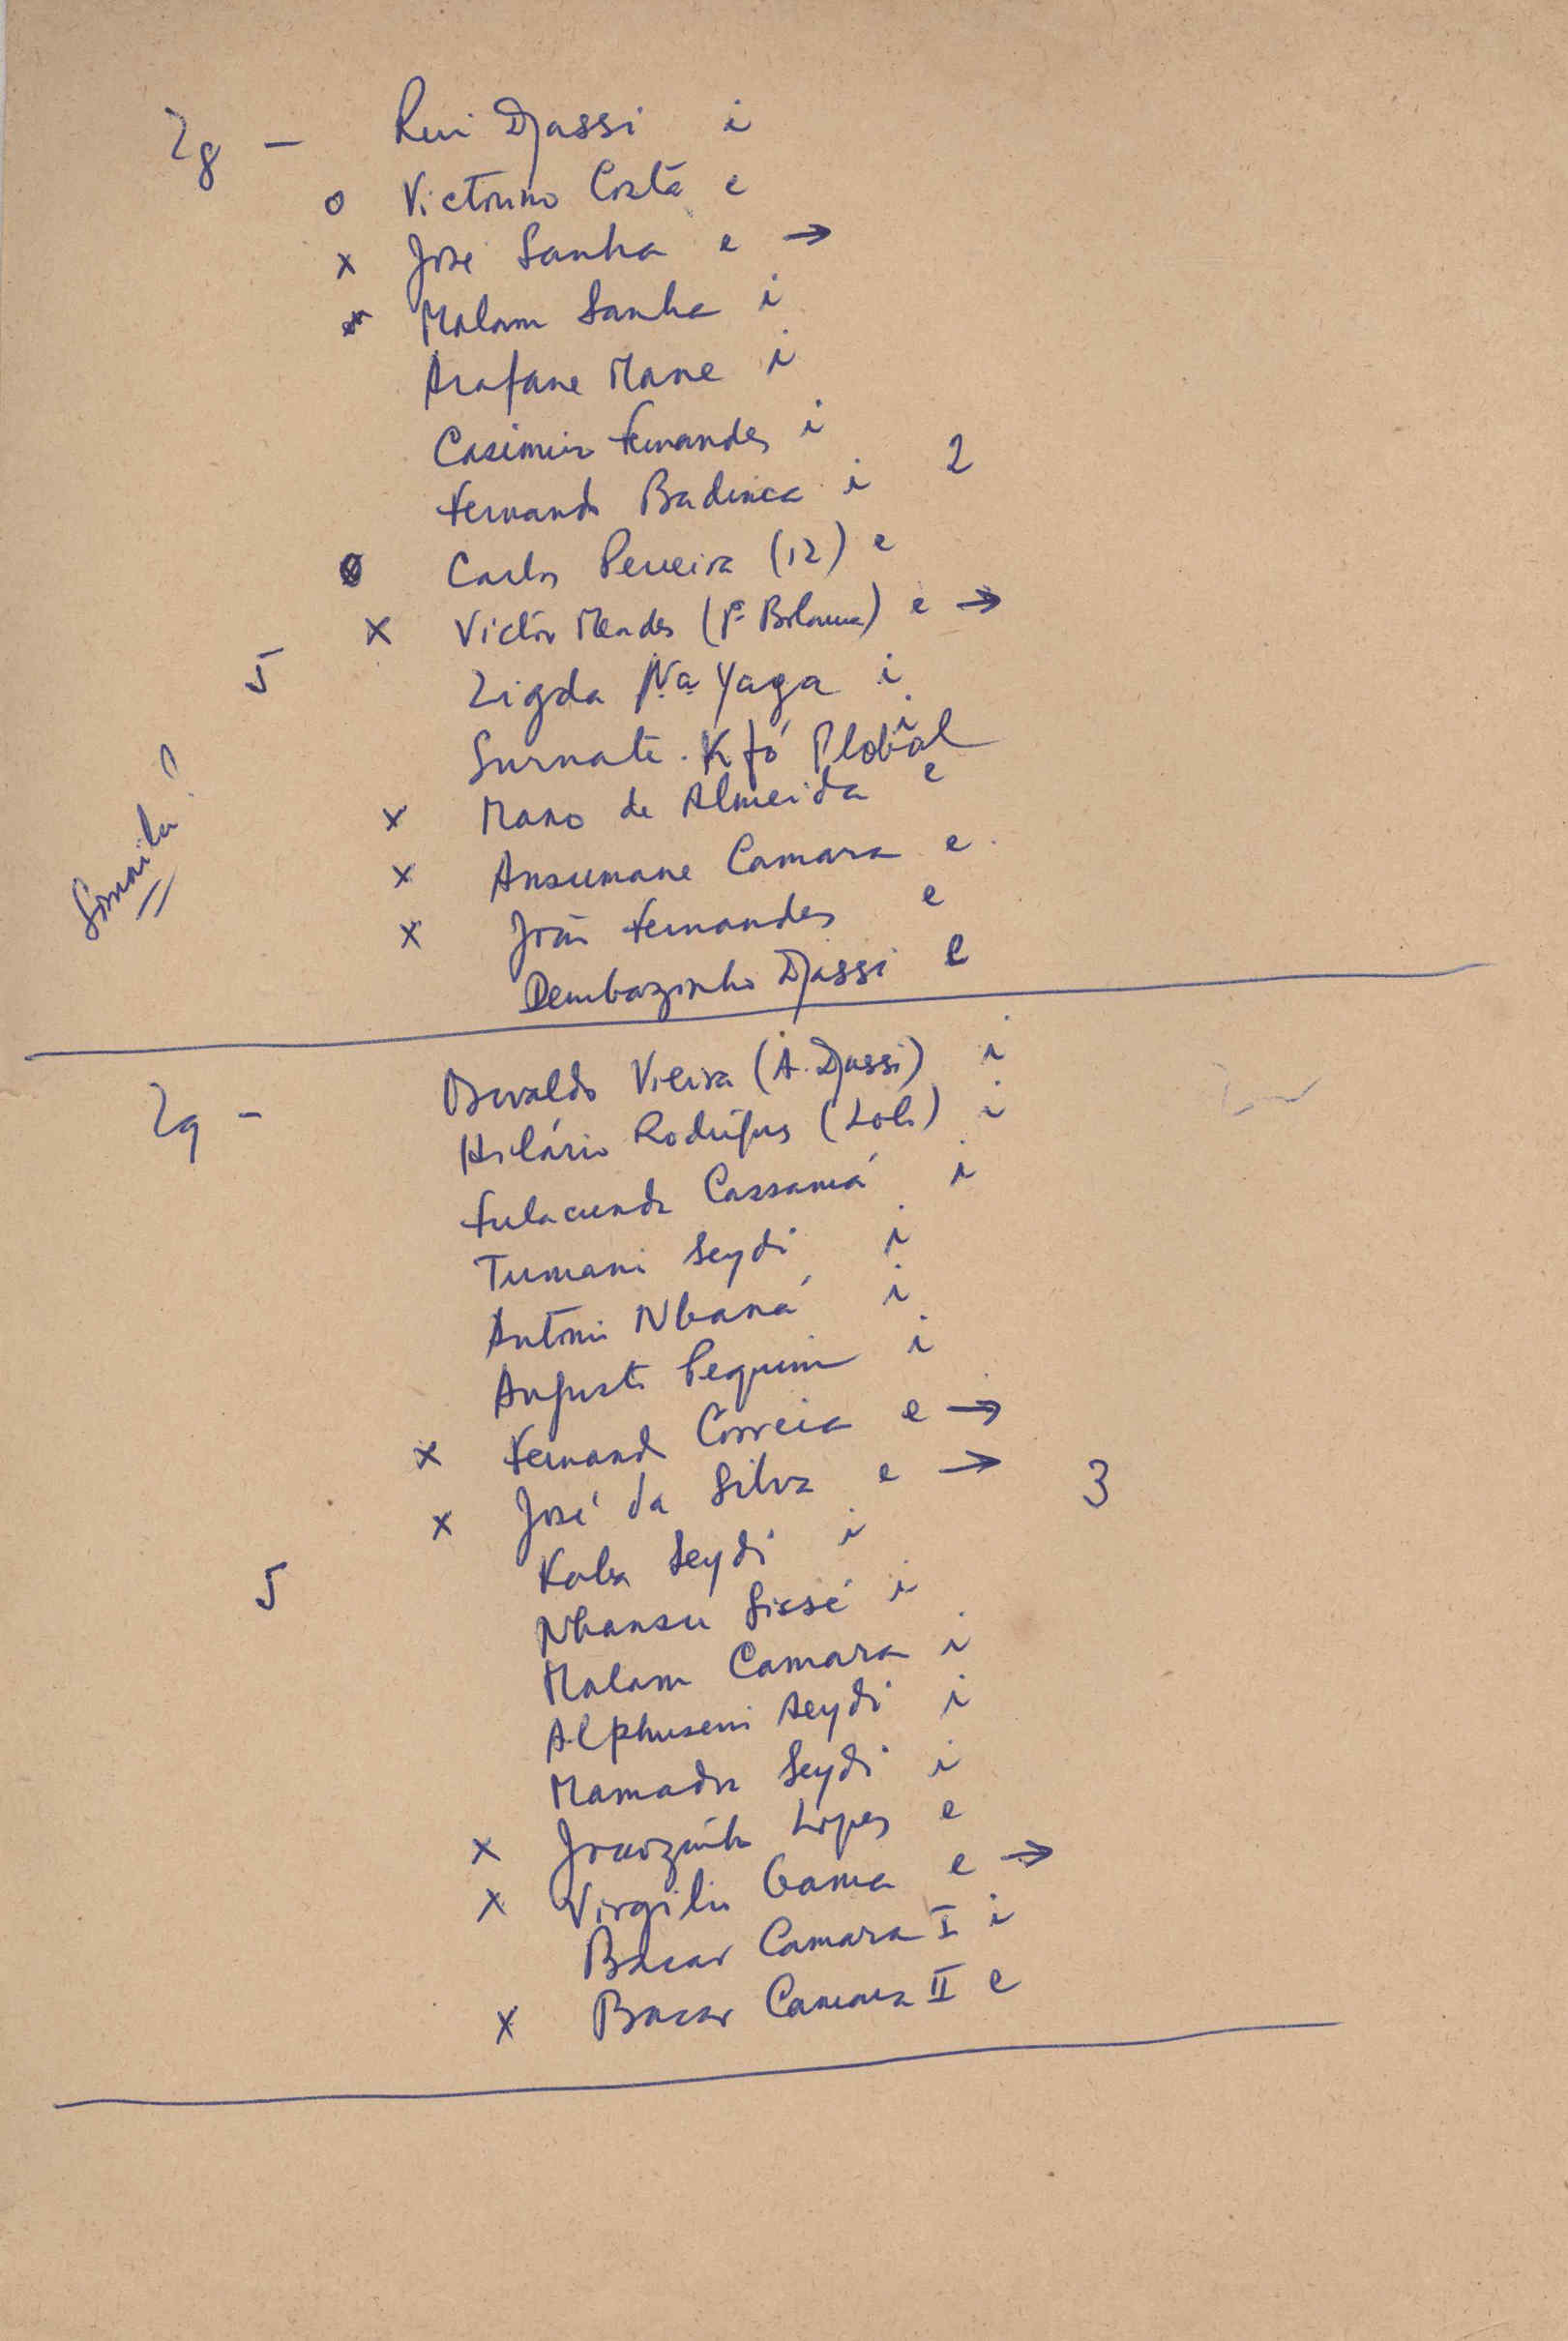 Zg — Rui Djassi i
o Victorino Costa e
x José Sanha e →
Malam Sanha i
Arafane Mane i
Casimiro Fernandes i
2
Fernando Badinca i
Carlos Pereira (12) e
x Victor Mendes (Pº Bolama) e →
5
Zigda Na Yaga i
Surnate Kfó Plobal i
x Mario de Almeida e
x Ansumane Camara e
x João Fernandes e
Dembazinho Djassi e
Zq — Osvaldo Vieira (A. Djassi) i
Hilário Rodrigues (Lolo) i
Fulacunda Cassamá i
Tumani Seydi i
António Nbaná i
Augusto Pequino i
x Fernando Correia e →
x José da Silva e →
3
Kaba Seydi i
5
Nhansu Sissé i
Malam Camara i
Alphuseni Seydi i
Mamadu Seydi i
x Joãozinho Lopes e
x Virgilio Gama e →
Bacar Camara I i
x Bacar Camara II e